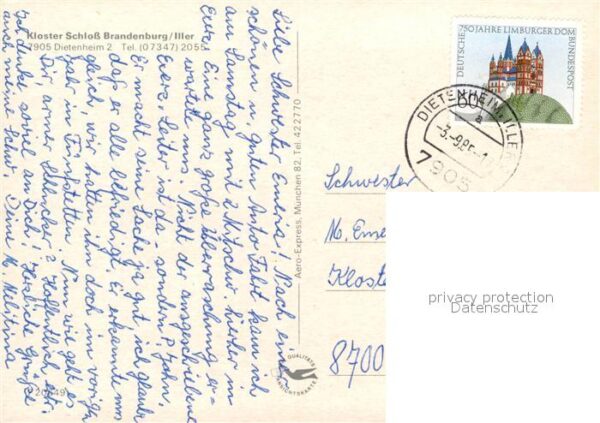 Kloster Schloß Brandenburg/Iller
7905 Dietenheim 2 Tel. (07347) 2055
Liebe Schwester Emeria! Nach einer
schönen, guten Auto Fahrt kam ich
am Samstag mit 2 Mitschw. hierher in
Eine ganz große Überraschung er-
wartete uns. Nicht der ausgeschriebene
Exerz. Leiter ist da - sondern P. John.
Er macht seine Sache ja gut, ich glaube
daß er alle befriedigt. Er erkannte uns
gleich, wir hatten ihn doch im vorigen
Jahr in Nun wie geht es
Dir armer 2 Hoffentlich
gut, denke soviel an Dich! Herzliche Grüße
auch meine Schw. Deine M.
Aero-Express, München 82, Tel. 422770
QUALITÄTS
ANSICHTSKARTE
DEUTSCHE BUNDESPOST
750 JAHRE LIMBURGER DOM
60
DIETENHEIM, ILLER
a
7905
Schwester
M. Eme
Kloste
8700
privacy protection
Datenschutz